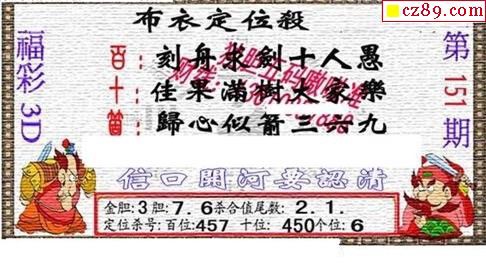 cz89.com
布衣定位殺
福彩3D
第151期
百：刻舟求劍十人愚
十：佳果滿樹大家樂
個：歸心似箭三六九
信口開河要認清
金胆:3胆:7.6杀合值尾数:2.1.
定位杀号:百位:457 十位:450个位:6